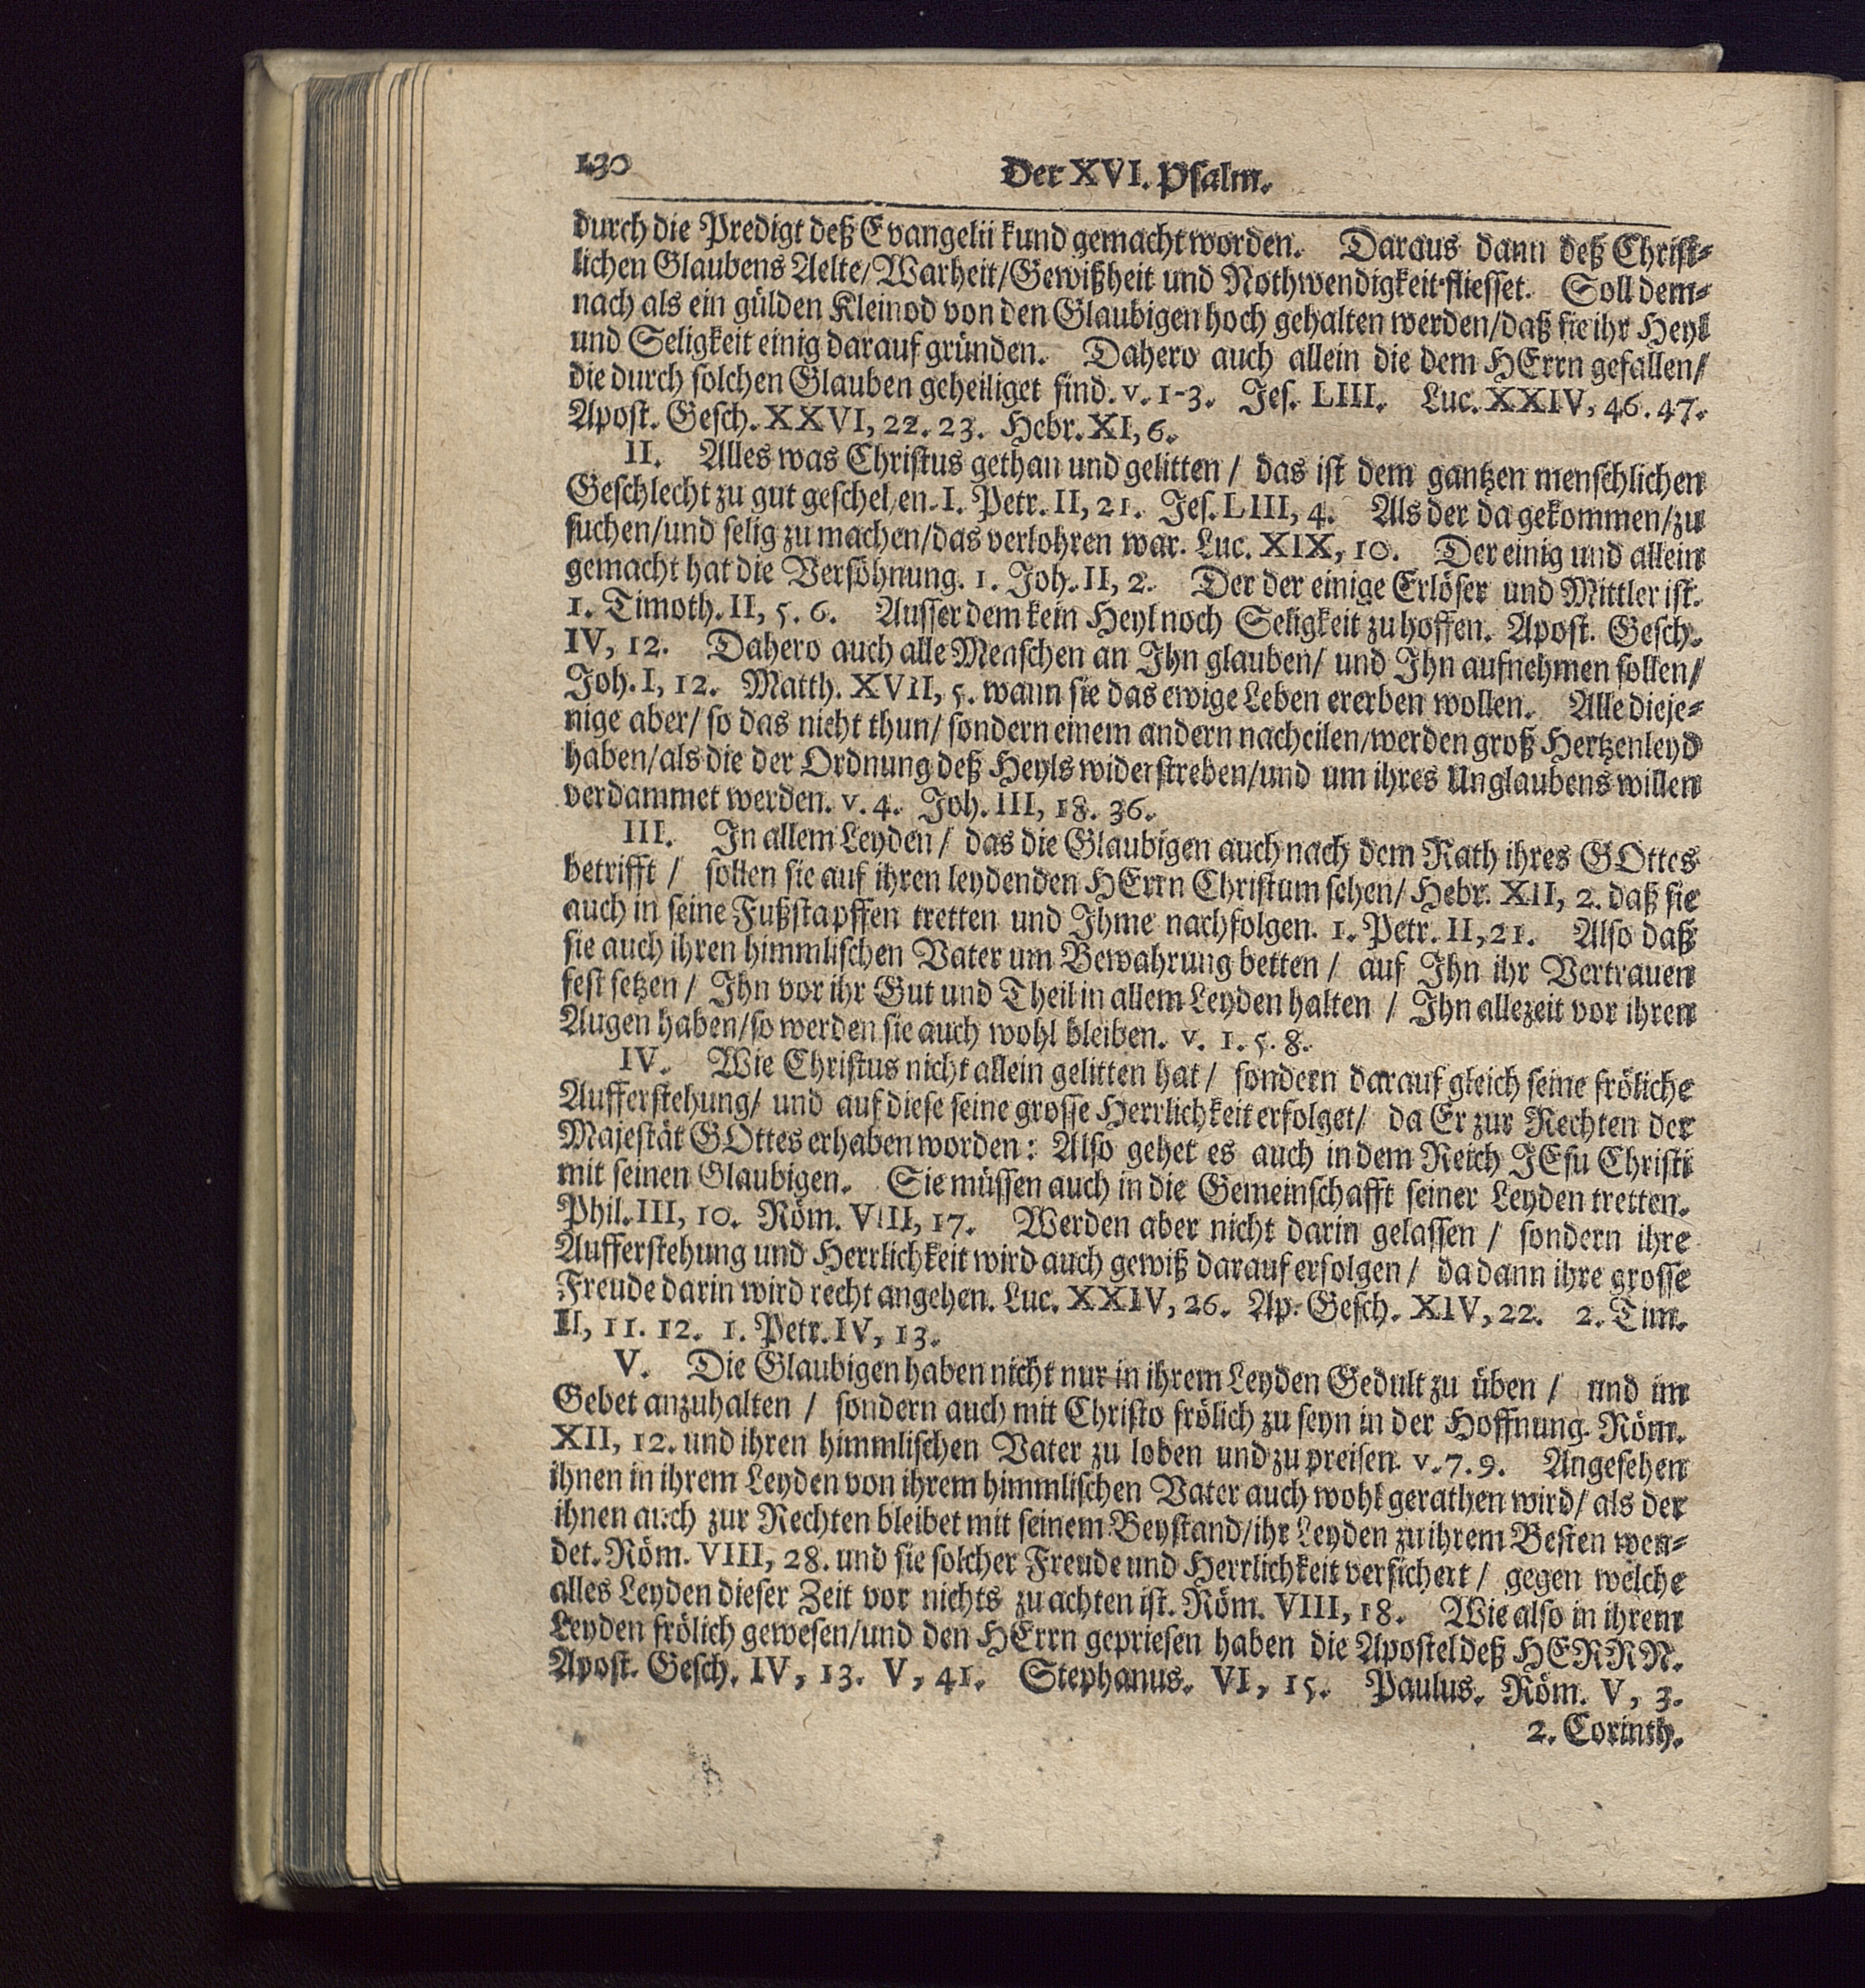 130
Der XVI. Psalm.
durch die Predigt deß Evangelii kund gemacht worden. Daraus dann deß Christ-
lichen Glaubens Aelte/Warheit/Gewißheit und Nothwendigkeit fliesset. Soll dem-
nach als ein gülden Kleinod von den Glaubigen hoch gehalten werden/daß sie ihr Heyl
und Seligkeit einig darauf gründen. Dahero auch allein die dem HErrn gefallen/
die durch solchen Glauben geheiliget sind. v. 1-3. Jes. LIII. Luc. XXIV, 46. 47.
Apost. Gesch. XXVI, 22. 23. Hebr. XI, 6.
II. Alles was Christus gethan und gelitten / das ist dem gantzen menschlichen
Geschlecht zu gut geschehen. I. Petr. II, 21. Jes. LIII, 4. Als der da gekommen/zu
suchen/und selig zu machen/das verlohren war. Luc. XIX, 10. Der einig und allein
gemacht hat die Versöhnung. 1. Joh. II, 2. Der der einige Erlöser und Mittler ist.
1. Timoth. II, 5. 6. Ausser dem kein Heyl noch Seligkeit zu hoffen. Apost. Gesch.
IV, 12. Dahero auch alle Menschen an Ihn glauben/ und Ihn aufnehmen sollen/
Joh. I, 12. Matth. XVII, 5. wann sie das ewige Leben ererben wollen. Alle dieje-
nige aber/ so das nicht thun/ sondern einem andern nacheilen/werden groß Hertzenleyd
haben/als die der Ordnung deß Heyls widerstreben/und um ihres Unglaubens willen
verdammet werden. v. 4. Joh. III, 18. 36.
III. In allem Leyden / das die Glaubigen auch nach dem Rath ihres GOttes
betrifft / sollen sie auf ihren leydenden HErrn Christum sehen/ Hebr. XII, 2. daß sie
auch in seine Fußstapffen tretten und Ihme nachfolgen. 1. Petr. II, 21. Also daß
sie auch ihren himmlischen Vater um Bewahrung betten / auf Ihn ihr Vertrauen
fest setzen / Ihn vor ihr Gut und Theil in allem Leyden halten / Ihn allezeit vor ihren
Augen haben/so werden sie auch wohl bleiben. v. 1. 5. 8.
IV. Wie Christus nicht allein gelitten hat / sondern darauf gleich seine fröliche
Aufferstehung/ und auf diese seine grosse Herrlichkeit erfolget/ da Er zur Rechten der
Majestät GOttes erhaben worden: Also gehet es auch in dem Reich JEsu Christi
mit seinen Glaubigen. Sie müssen auch in die Gemeinschafft seiner Leyden tretten.
Phil. III, 10. Röm. VIII, 17. Werden aber nicht darin gelassen / sondern ihre
Aufferstehung und Herrlichkeit wird auch gewiß darauf erfolgen / da dann ihre grosse
Freude darin wird recht angehen. Luc. XXIV, 26. Ap. Gesch. XIV, 22. 2. Tim.
II, 11. 12. 1. Petr. IV, 13.
V. Die Glaubigen haben nicht nur in ihrem Leyden Gedult zu üben / und im
Gebet anzuhalten / sondern auch mit Christo frölich zu seyn in der Hoffnung. Röm.
XII, 12. und ihren himmlischen Vater zu loben und zu preisen. v. 7. 9. Angesehen
ihnen in ihrem Leyden von ihrem himmlischen Vater auch wohl gerathen wird/ als der
ihnen auch zur Rechten bleibet mit seinem Beystand/ihr Leyden zu ihrem Besten wen-
det. Röm. VIII, 28. und sie solcher Freude und Herrlichkeit versichert / gegen welche
alles Leyden dieser Zeit vor nichts zu achten ist. Röm. VIII, 18. Wie also in ihrem
Leyden frölich gewesen/und den HErrn gepriesen haben die Apostel deß HERRN.
Apost. Gesch. IV, 13. V, 41. Stephanus. VI, 15. Paulus. Röm. V, 3.
2. Corinth.